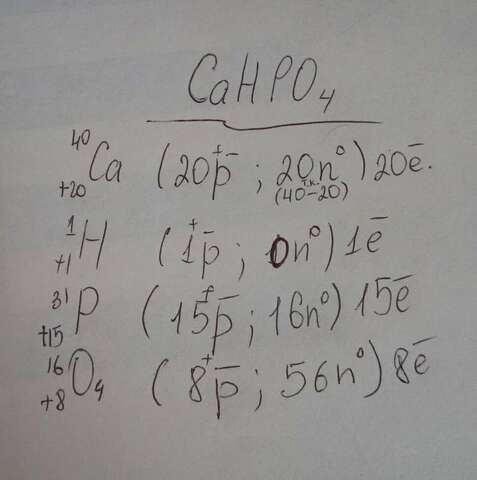 CaHPO₄
⁴⁰₊₂₀Ca (20p̄⁺; 20n⁰) 20ē.
т.к. (40-20)
¹₊₁H (1p̄⁺; 0n⁰) 1ē
³¹₊₁₅P (15p̄⁺; 16n⁰) 15ē
¹⁶₊₈O₄ (8p̄⁺; 56n⁰) 8ē